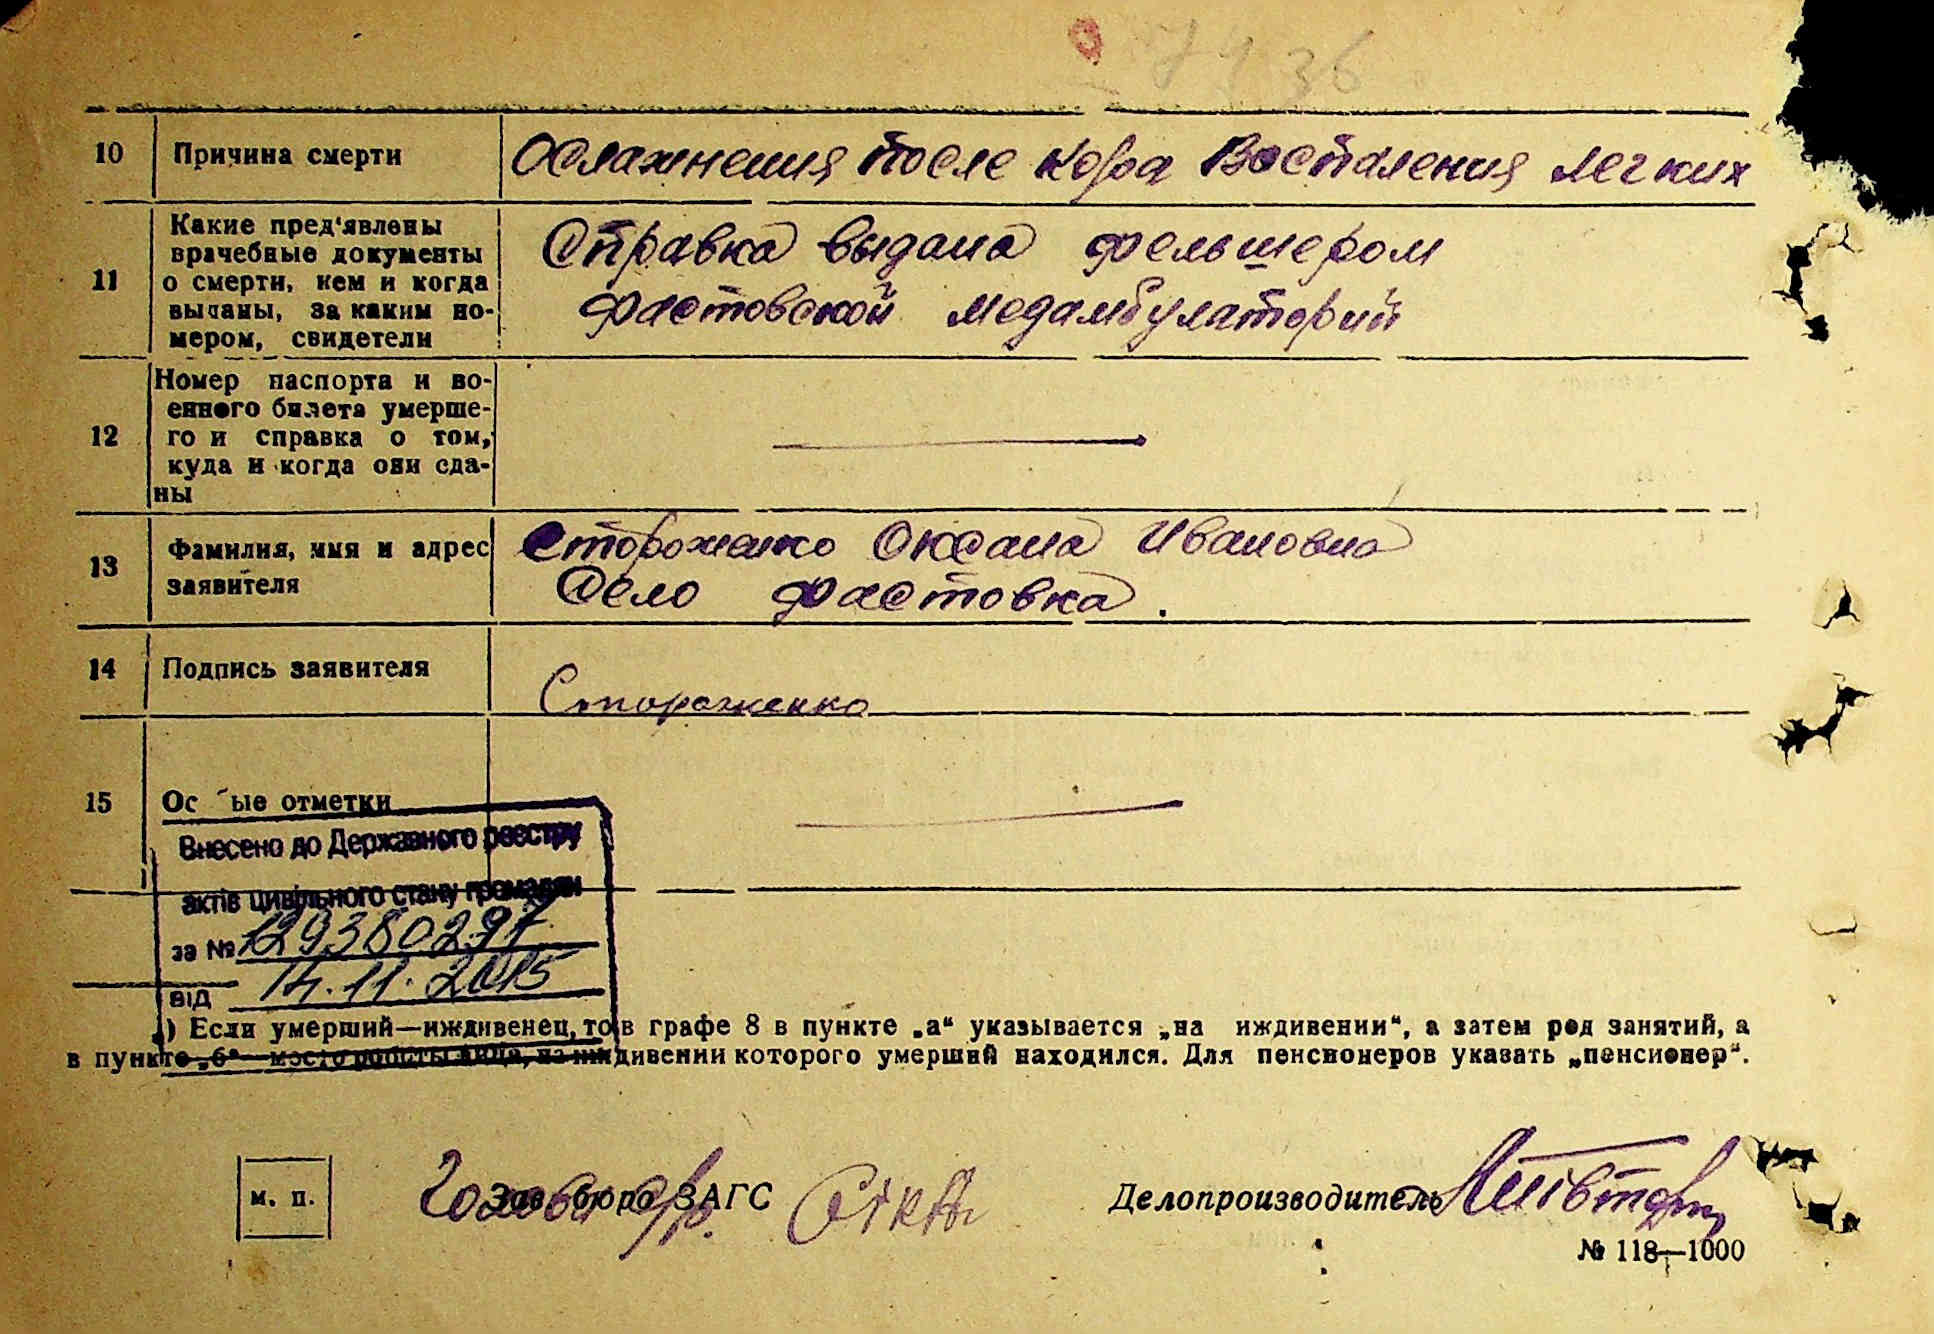 36
10 Причина смерти Ослажнения после кора Воспаления легких
Какие пред'явлены
врачебные документы
11 о смерти, кем и когда
выданы, за каким но-
мером, свидетели
Справка выдана фельшером
Фастовской медамбулаторий
Номер паспорта и во-
енного билета умерше-
12 го и справка о том,
куда и когда они сда-
ны
13 Фамилия, имя и адрес
заявителя
Стороженко Оксана Ивановна
Село Фастовка.
14 Подпись заявителя
Стороженко
15 Ос ые отметки
Внесено до Державного реєстру
актів цивільного стану громадян
за № 129380297
від 14.11.2015
) Если умерший—иждивенец, то в графе 8 в пункте „а“ указывается „на иждивении“, а затем род занятий, а
в пункте „б“ место работы лица, на иждивении которого умерший находился. Для пенсионеров указать „пенсионер“.
м. п.
Голова с/р.
Зав. бюро ЗАГС
Делопроизводитель
№ 118—1000